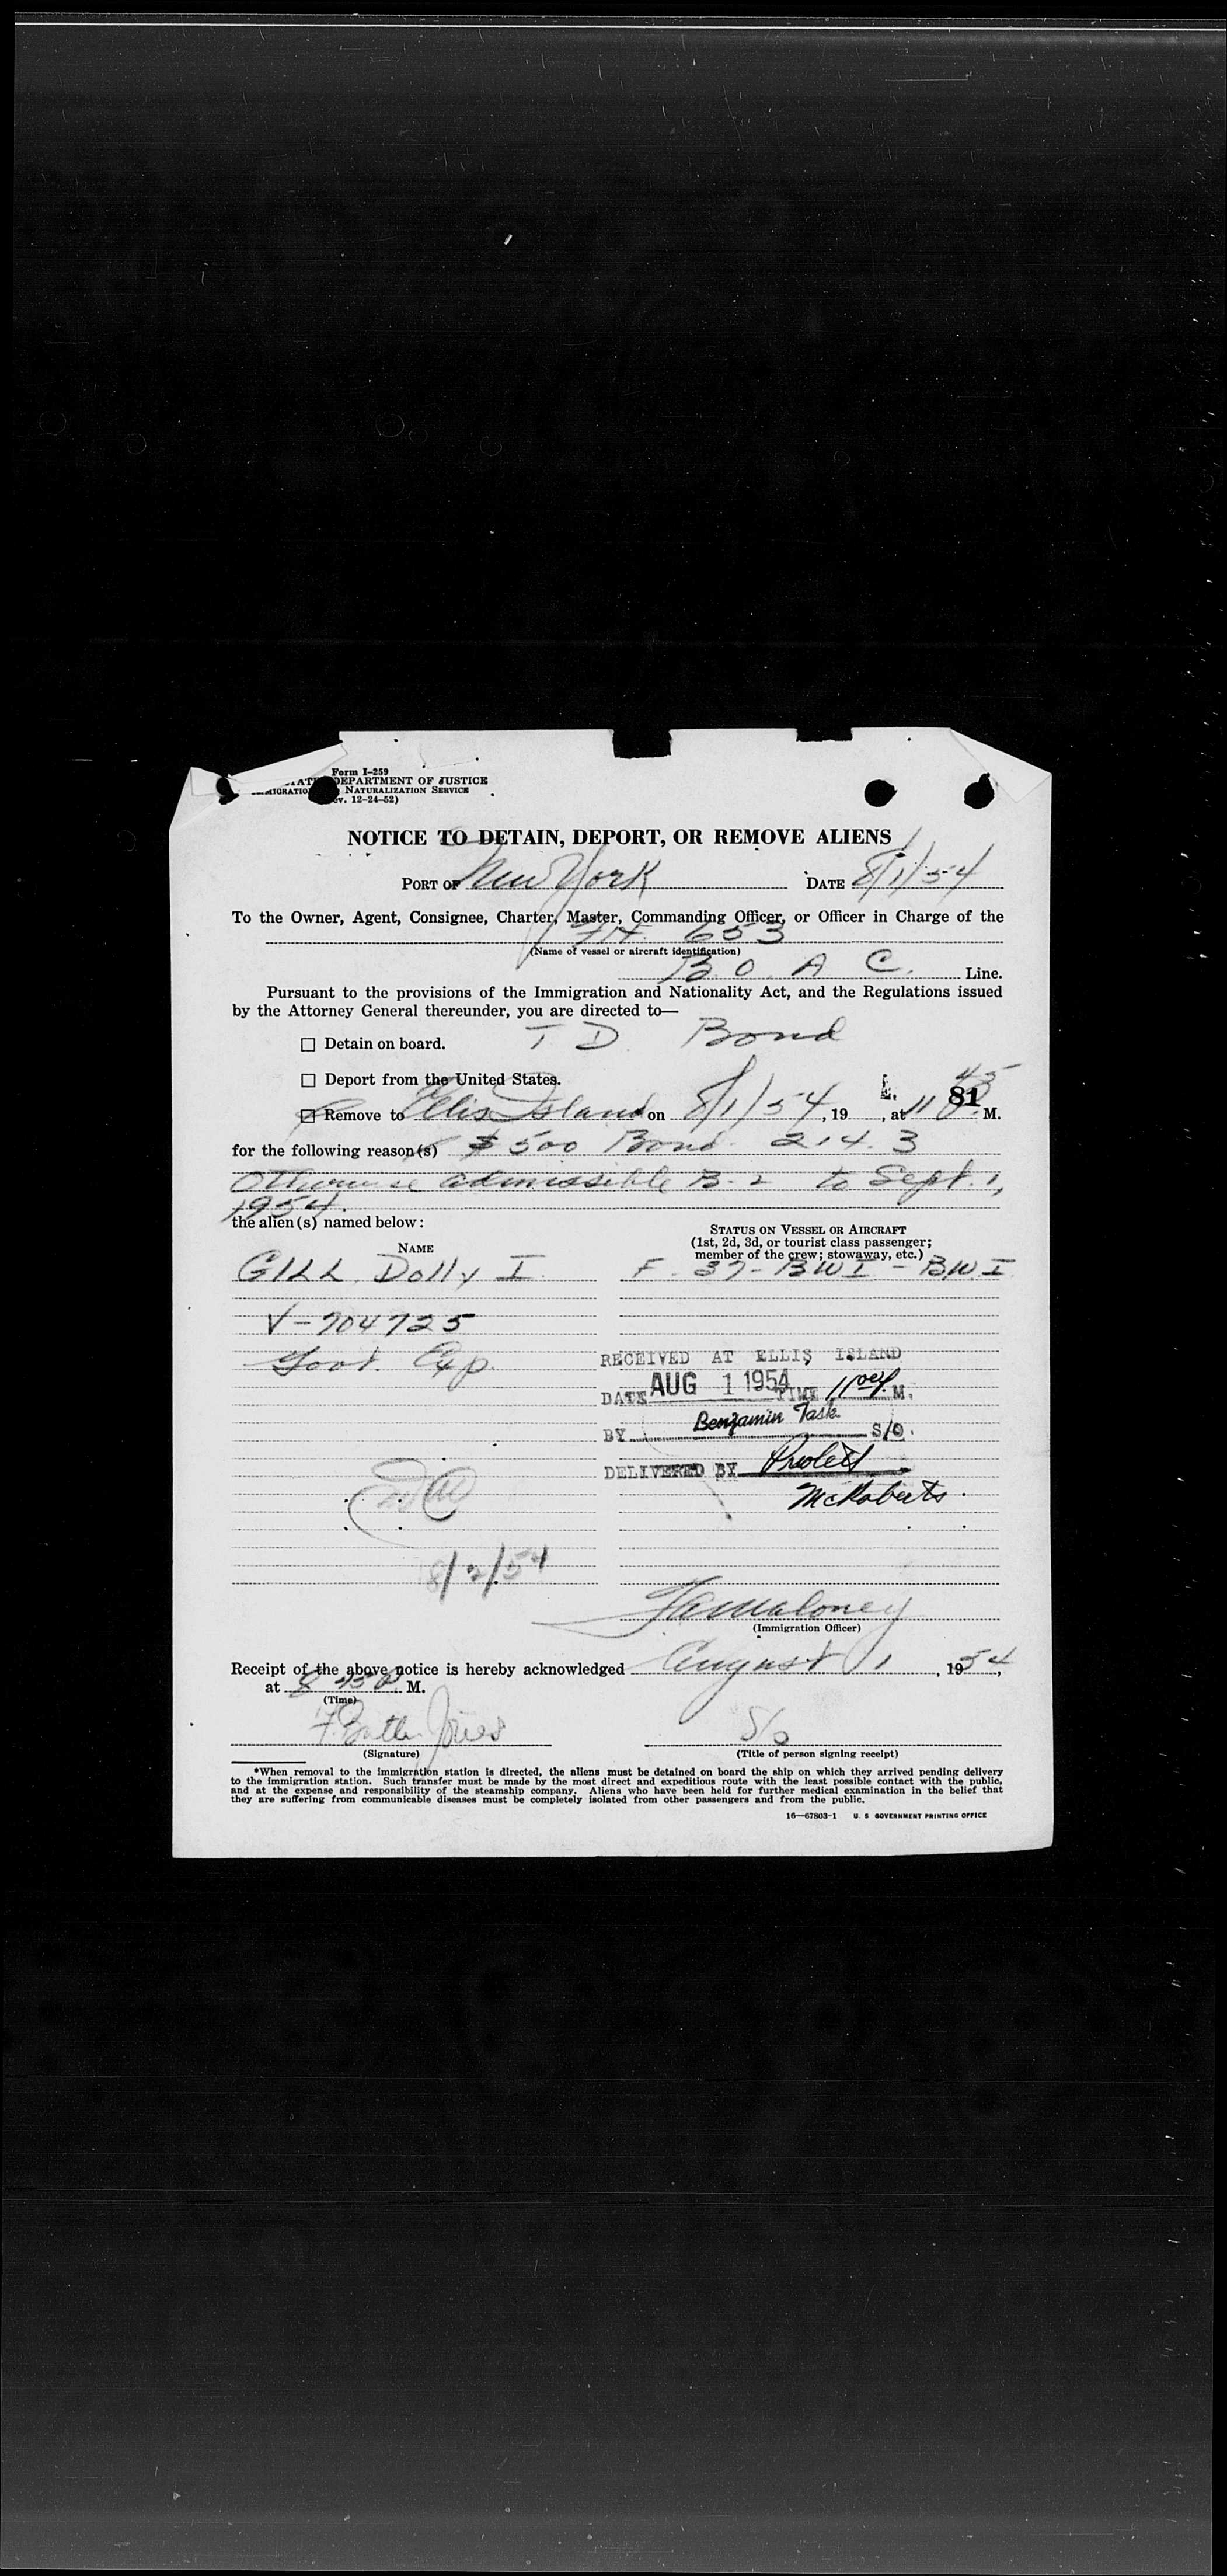 Form I-259
DEPARTMENT OF JUSTICE
NATURALIZATION SERVICE
12-24-52)
NOTICE TO DETAIN, DEPORT, OR REMOVE ALIENS
PORT OF New York DATE 8/1/54
To the Owner, Agent, Consignee, Charter, Master, Commanding Officer, or Officer in Charge of the
Flt. 653
(Name of vessel or aircraft identification)
B. O. A C. Line.
Pursuant to the provisions of the Immigration and Nationality Act, and the Regulations issued
by the Attorney General thereunder, you are directed to—
T D Bond
☐ Detain on board.
☐ Deport from the United States.
81
☐ Remove to Ellis Island on 8/1/54, 19 , at 11 45 P. M.
for the following reason(s) $500 Bond 214.3
Otherwise admissible B-2 to Sept. 1,
1954.
the alien(s) named below:
STATUS ON VESSEL OR AIRCRAFT
(1st, 2d, 3d, or tourist class passenger;
member of the crew; stowaway, etc.)
NAME
GILL, Dolly I. F - 37 - BWI - BWI
V-704725
Govt. Exp.
RECEIVED AT ELLIS ISLAND
DATE AUG 1 1954 TIME M.
BY Benjamin Task S/O.
DELIVERED BY
McRoberts
8/2/54
Maloney
(Immigration Officer)
Receipt of the above notice is hereby acknowledged August 1, 1954,
at 8 45 P. M.
(Time)
F. Butler Jones S/o
(Signature) (Title of person signing receipt)
*When removal to the immigration station is directed, the aliens must be detained on board the ship on which they arrived pending delivery
to the immigration station. Such transfer must be made by the most direct and expeditious route with the least possible contact with the public,
and at the expense and responsibility of the steamship company. Aliens who have been held for further medical examination in the belief that
they are suffering from communicable diseases must be completely isolated from other passengers and from the public.
16—67803-1 U. S GOVERNMENT PRINTING OFFICE